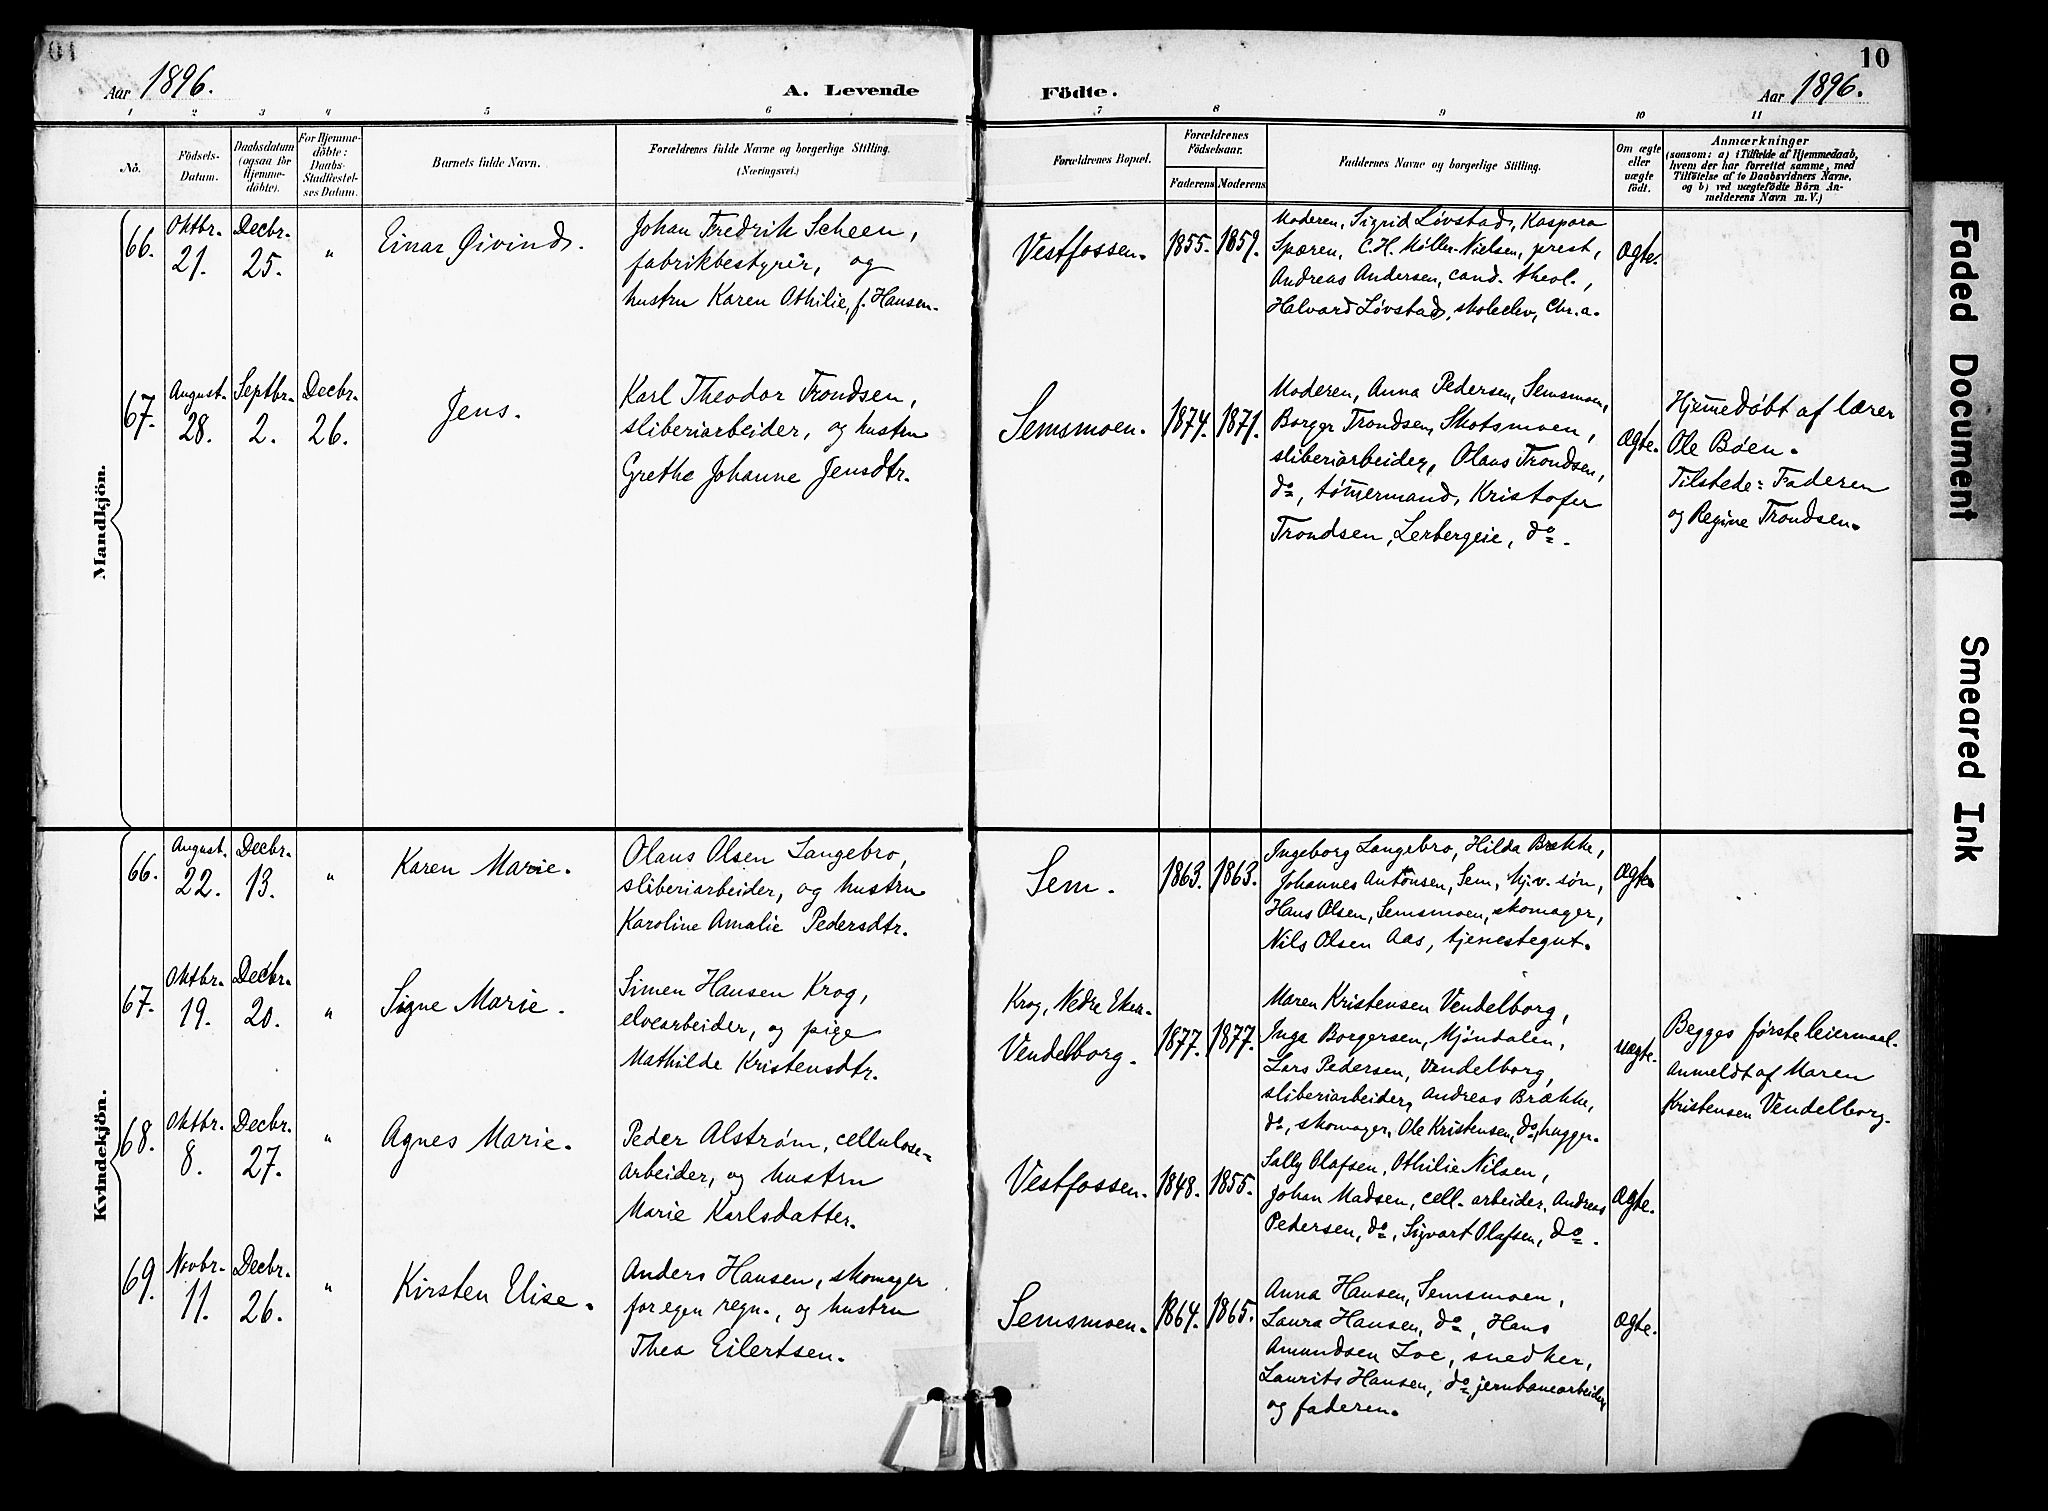 01
10
Aar 1896.
A. Levende
Födte.
Aar 1896.
1 2 3 4 5 6 7 8 9 10 11
No.
Födsels-
Datum.
Daabsdatum
(ogsaa for
Hjemme-
döbte).
For Hjemme-
döbte:
Daabs-
Stadfæstel-
ses Datum.
Barnets fulde Navn.
Forældrenes fulde Navne og borgerlige Stilling.
(Næringsvei.)
Forældrenes Bopæl.
Forældrenes
Födselsaar.
Faderens Moderens
Faddernes Navne og borgerlige Stilling.
Om ægte
eller
uægte
födt.
Anmærkninger
(saasom: a) i Tilfælde af Hjemmedaab,
hvem der har forrettet samme, med
Tilföielse af to Daabsvidners Navne,
og b) ved uægtefödte Börn An-
melderens Navn m. V.)
Mandkjön.
66.
Oktbr.
21.
Decbr.
25.
"
Einar Øivind.
Johan Fredrik Scheen,
fabrikbestyrer, og
hustru Karen Othilie, f. Hansen.
Vestfossen.
1855. 1859.
Moderen, Sigrid Løvstad, Kaspara
Sparen, C.H. Møller-Nielsen, prest,
Andreas Andersen, cand. theol.,
Halvard Løvstad, skoleelev, Chr.a.
ægte.
67.
August.
28.
Septbr.
2.
Decbr.
26.
Jens.
Karl Theodor Trondsen,
sliberiarbeider, og hustru
Grethe Johanne Jensdtr.
Semsmoen.
1874. 1871.
Moderen, Anna Pedersen, Semsmoen,
Borger Trondsen, Skotsmoen,
sliberiarbeider, Olaus Trondsen,
do, tømmermand, Kristofer
Trondsen, Lerbergeie, do.
ægte.
Hjemmedøbt af lærer
Ole Bøen.
Tilstede: Faderen
og Regine Trondsen.
Kvindekjön.
66.
August.
22.
Decbr.
13.
"
Karen Marie.
Olaus Olsen Langebro,
sliberiarbeider, og hustru
Karoline Amalie Pedersdtr.
Sem.
1863. 1863.
Ingeborg Langebro, Hilda Brække,
Johannes Antonsen, Sem, hj.v. søn,
Hans Olsen, Semsmoen, skomager,
Nils Olsen Aas, tjenestegut.
ægte
67.
Oktbr.
19.
Decbr.
20.
"
Signe Marie.
Simen Hansen Krog,
elvearbeider, og pige
Mathilde Kristensdtr.
Krog, Nedre Eker.
Vendelborg.
1877. 1877.
Maren Kristensen Vendelborg,
Inga Borgersen, Mjøndalen,
Lars Pedersen, Vendelborg,
sliberiarbeider, Andreas Brække,
do, skomager, Ole Kristensen, do, hugger.
uægte.
Begges første leiermaal.
Anmeldt af Maren
Kristensen Vendelborg.
68.
Oktbr.
8.
Decbr.
27.
"
Agnes Marie.
Peder Alstrøm, cellulose-
arbeider, og hustru
Marie Karlsdatter.
Vestfossen.
1848. 1855.
Sally Olafsen, Othilie Nilsen,
Johan Madsen, cell. arbeider, Andreas
Pedersen, do, Sigvart Olafsen, do.
ægte.
69.
Novbr.
11.
Decbr.
26.
"
Kirsten Elise.
Anders Hansen, skomager
for egen regn., og hustru
Thea Eilertsen.
Semsmoen.
1864. 1865.
Anna Hansen, Semsmoen,
Laura Hansen, do, Hans
Amundsen Loe, snedker,
Laurits Hansen, do, jernbanearbeider
og faderen.
ægte.
Faded Document
Smeared Ink